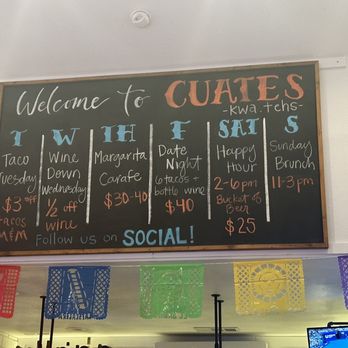 Welcome to CUATES
-kwa.tehs-
T W TH F SAT S
Taco Tuesday
$3 off
tacos
M&M
Wine
Down
Wednesday
1/2 off
wine
Margarita
Carafe
$30-40
Date
Night
6 tacos +
bottle wine
$40
Happy
Hour
2-6pm
Bucket of
Beer
$25
Sunday
Brunch
11-3pm
Follow us on SOCIAL!